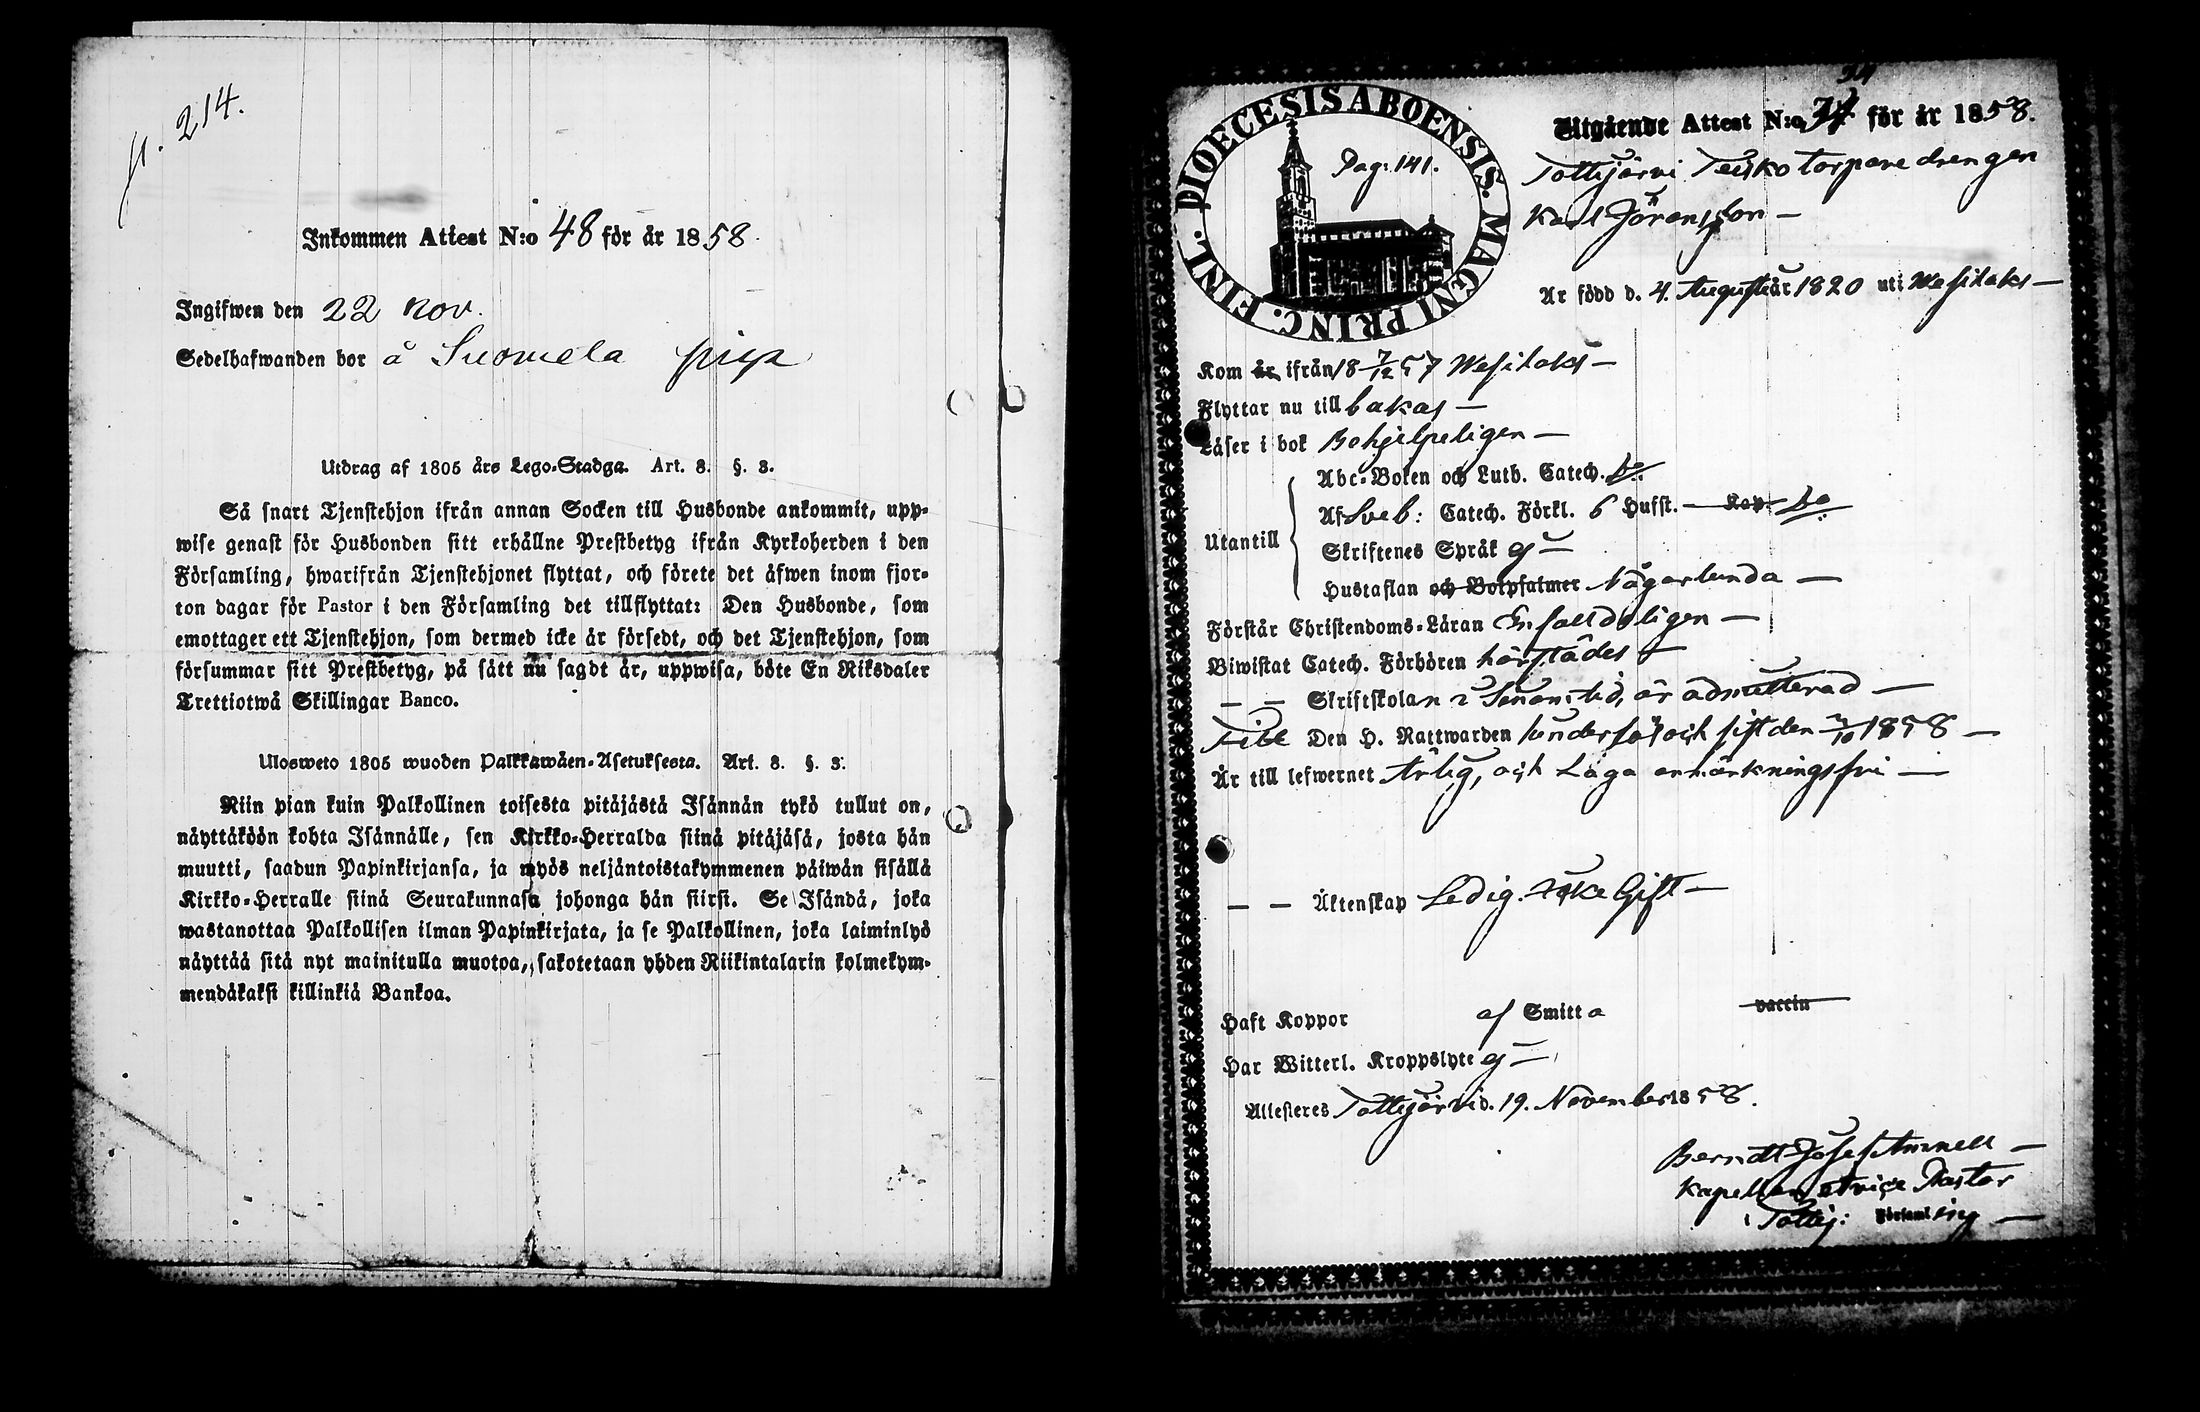 p. 214.
Inkommen Attest N:o 48 för år 1858.
Ingifwen den 22 nov.
Sedelhafwanden bor å Suomela
Utdrag af 1805 års Lego-Stadga. Art. 8. §. 3.
Så snart Tjenstehjon ifrån annan Socken till Husbonde ankommit, upp-
wise genast för Husbonden sitt erhållne Prestbetyg ifrån Kyrkoherden i den
Församling, hwarifrån Tjenstehjonet flyttat, och förete det äfwen inom fjor-
ton dagar för Pastor i den Församling det tillflyttat: Den Husbonde, som
emottager ett Tjenstehjon, som dermed icke är försedt, och det Tjenstehjon, som
försummar sitt Prestbetyg, på sätt nu sagdt är, uppwisa, böte En Riksdaler
Trettiotwå Skillingar Banco.
Ulosweto 1805 wuoden Palkkawäen-Asetuksesta. Art. 8. §. 3.
Niin pian kuin Palkollinen toisesta pitäjästä Isännän tykö tullut on,
näyttäköön kohta Isännälle, sen Kirkko-Herralda siinä pitäjäsä, josta hän
muutti, saadun Papinkirjansa, ja myös neljäntoistakymmenen päiwän sisällä
Kirkko-Herralle siinä Seurakunnasa johonga hän siirsi. Se Isändä, joka
wastanottaa Palkollisen ilman Papinkirjata, ja se Palkollinen, joka laiminlyö
näyttää sitä nyt mainitulla muotoa, sakotetaan yhden Riikintalarin kolmekym-
mendäkaksi killinkiä Bankoa.
DIOECESIS ABOENSIS. MAGNI PRINC. FINL.
Pag: 141.
34
Utgående Attest N:o 34 för år 1858.
Tottijärvi Teisko torpare drengen
Karl Göransson —
Är född d. 4. Augusti år 1820 uti Wesilaks —
Kom år ifrån 18 7/12 57 Wesilaks —
Flyttar nu till bakas —
Läser i bok Behjelpeligen —
Utantill
Abc-Boken och Luth. Catech. do
Af Sveb: Catech. Förkl. 6 Hufst. — Kap. do
Skriftenes Språk g —
Hustaflan och Botpsalmer Någorlunda —
Förstår Christendoms-Läran Enfalldeligen —
Biwistat Catech. Förhören härstädes —
— — Skriftskolan i Sinom tid, är admitterad —
Den H. Nattwarden sist den 1858 —
Är till lefwernet Ärlig, och Laga anmärkningsfri —
— — Äktenskap Ledig. Icke Gift —
Haft Koppor af Smitta vaccin
Har Witterl. Kroppslyte g —
Attesteres Tottijärvi d. 19. November 1858.
Berndt Josef Amnell —
Kapellan et vice Pastor
i Tottij: Församling —